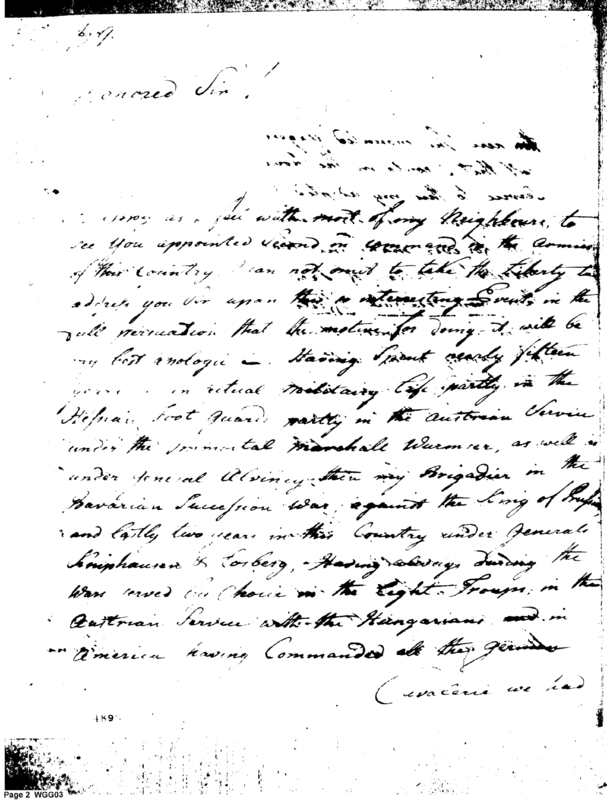 Honored Sir!
happy as I feel with most of my Neighbours, to
see You appointed Second in command in the Armies
of this Country I can not omit to take the Liberty to
address you Sir upon this so interresting Event, in the
full persuation that the motive for doing it will be
my best apologie – Having Spent nearly fifteen
years in actual military Life partly in the
Hessian Foot Guards partly in the Austrian Service
under the Immortal Marshall Wurmser, as well as
under General Alvinzy then my Brigadier in the
Bavarian Succession War, against the King of Prussia
and lastly two years in this Country under Generals
Kniphausen & Losberg, - Having always During the
Wars served by Choice in the Light Troops, in the
Austrian Service with the Hungarians and in
America having Commanded all the German
Cavalerie we had
189
Page 2 WGG03